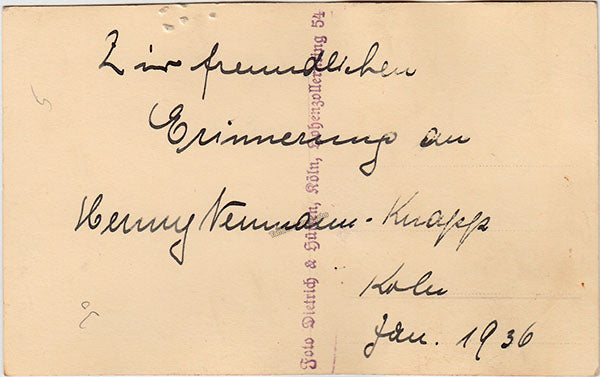 Zur freundlichen
Erinnerung an
Henny Neumann-Knapp
Köln
Jan. 1936
Foto Dietrich & Köln, Hohenzollernring 54